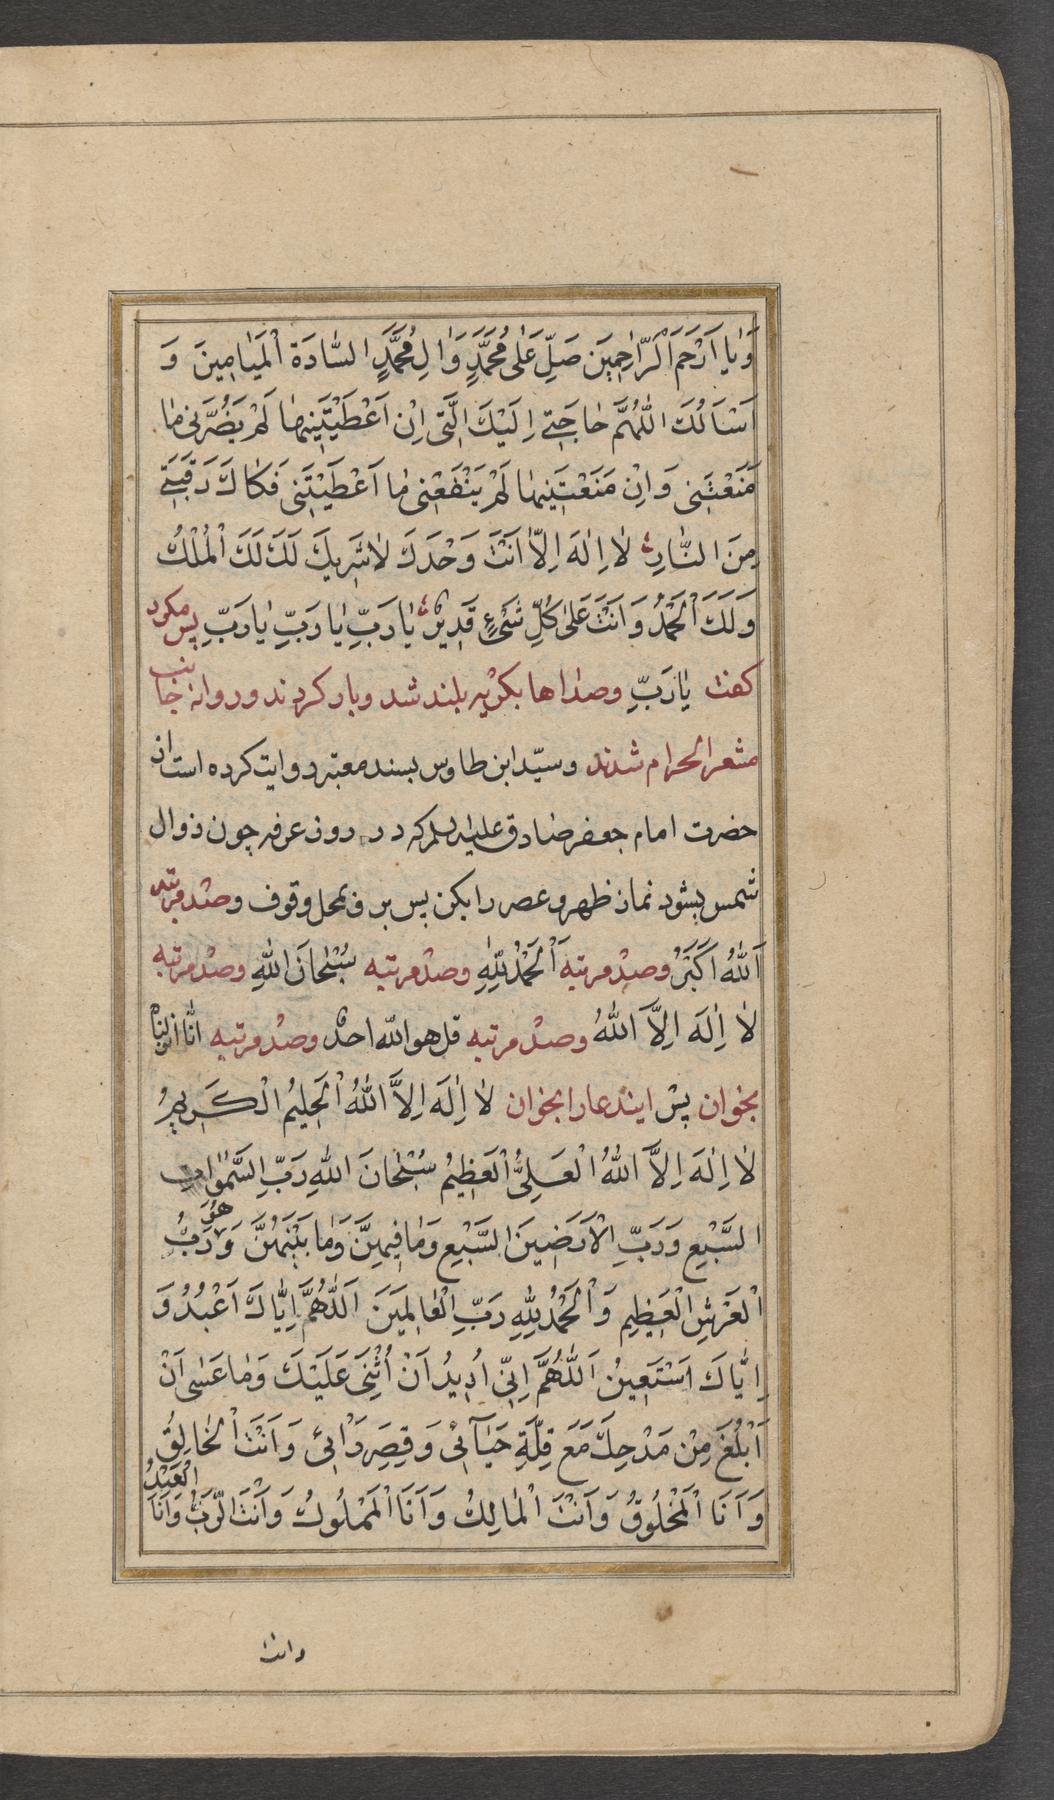 وَيٰا اَرْحَمَ الْرّٰاحِمِيَن صَلِّ عَلٰى مُحَمَّدٍ وَاٰلِ مُحَمَّدٍ السّٰادَة الْمَيٰامِينَ وَ
اَسْاَلُكَ اللّٰهُمَّ حٰاجَتِے اِلَيْكَ الَّتى اِنْ اَعْطَيْتَنِيهٰا لَمْ يَضُرَّنى مٰا
مَنَعْتَنِى وَاِنْ مَنَعْتَنِيهٰا لَمْ يَنْفَعْنِى مٰا اَعْطَيْتَنِى فَكٰاكَ رَقَبَتِے
مِنَ النّٰارِ لٰا اِلٰهَ اِلّٰا اَنْتَ وَحْدَكَ لٰا شَرِيكَ لَكَ لَكَ الْمُلْكُ
وَلَكَ الْحَمْدُ وَاَنْتَ عَلٰى كُلِّ شَىْءٍ قَدِيرٌ يٰا رَبِّ يٰا رَبِّ يٰا رَبِّ پس مكرر
كفت يٰا رَبِّ وصداها بكريه بلند شد وبار كردند وروانه جانب
مشعر الحرام شدند وسيّد ابن طاوس بسند معتبر روايت كرده است از
حضرت امام جعفر صٰادق عليه السلم كه در روز عرفه چون زوال
شمس بشود نماز ظهر و عصر را بكن پس برو بمحل وقوف وصد مرتبه
اَللّٰهُ اَكَبَرُ وصد مرتبه اَلْحَمْدُ لِلّٰهِ وصد مرتبه سُبْحٰانَ اللّٰهِ وصد مرتبه
لٰا اِلٰهَ اِلَّا اللّٰهُ وصد مرتبه قل هو اللّٰه احدٌ وصد مرتبه انّا انزلناه
بخوان پس ايندعا را بخوان لٰا اِلٰهَ اِلَّا اللّٰهُ الْحَلِيمُ الْكَرِيمُ
لٰا اِلٰهَ اِلَّا اللّٰهُ الْعَلِىُّ الْعَظِيمُ سُبْحٰانَ اللّٰهِ رَبِّ السَّمٰوٰاتِ
السَّبْعِ وَرَبِّ الْاَرَضِينَ السَّبْعِ وَمٰا فِيهِنَّ وَمٰا بَيْنَهُنَّ وَهُوَ رَبُّ
الْعَرْشِ الْعَظِيمِ وَالْحَمْدُ لِلّٰهِ رَبِّ الْعٰالَمِيَنَ اَللّٰهُمَّ اِيّٰاكَ اَعْبُدُ وَ
اِيّٰاكَ اَسْتَعِينُ اَللّٰهُمَّ اِنّى اُرِيدُ اَنْ اُثْنِىَ عَلَيْكَ وَمٰا عَسٰى اَنْ
اَبْلُغَ مِنْ مَدْحِكَ مَعَ قِلَّةِ حَيٰآئى وَقِصَرِ رَاْئى وَاَنْتَ الْخٰالِقُ
وَاَنَا الْمَخْلُوقُ وَاَنْتَ الْمٰالِكُ وَاَنَا الْمَمْلُوكُ وَاَنْتَ الرَّبُّ وَاَنَا الْعَبْدُ
وانت